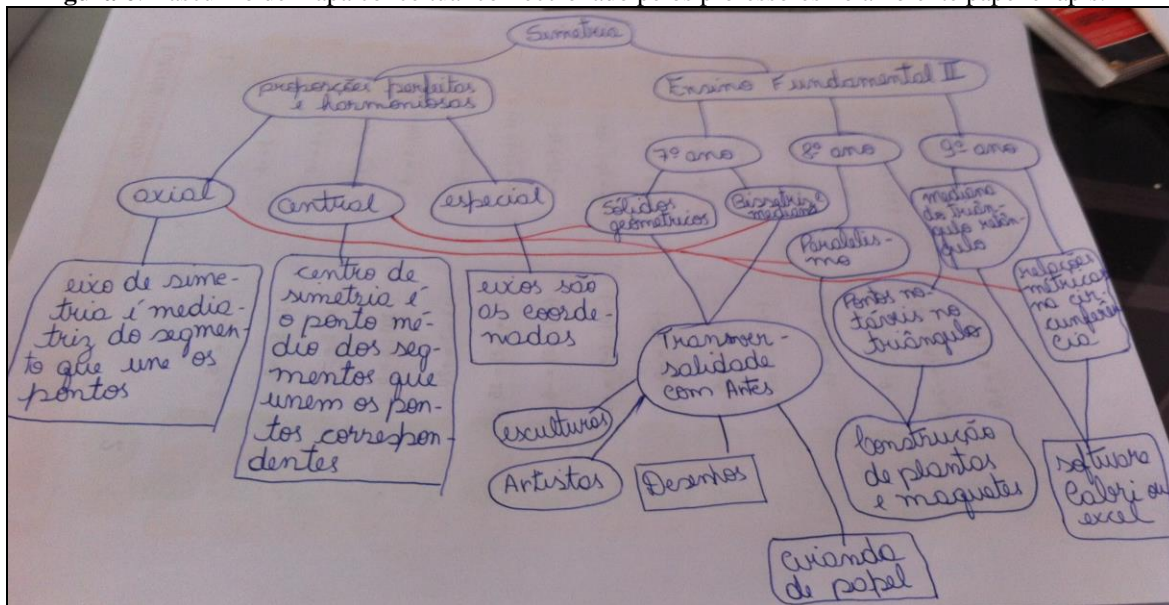 Simetria
proporções perfeitas
e harmoniosas
Ensino Fundamental II
axial
central
especial
7º ano
8º ano
9º ano
Sólidos
geométricos
Bissetriz e
mediana
Paralelis-
mo
mediana
do triân-
gulo retân-
gulo
eixo de sime-
tria é media-
triz do segmen-
to que une os
pontos
centro de
simetria é
o ponto mé-
dio dos seg-
mentos que
unem os pon-
tos correspon-
dentes
eixos são
as coorde-
nadas
Transver-
salidade
com Artes
Pontos no-
táveis no
triângulo
relações
métricas
na cir-
cunferên-
cia
esculturas
Artistas
Desenhos
Construção
de plantas
e maquetes
software
Cabri ou
excel
de papel